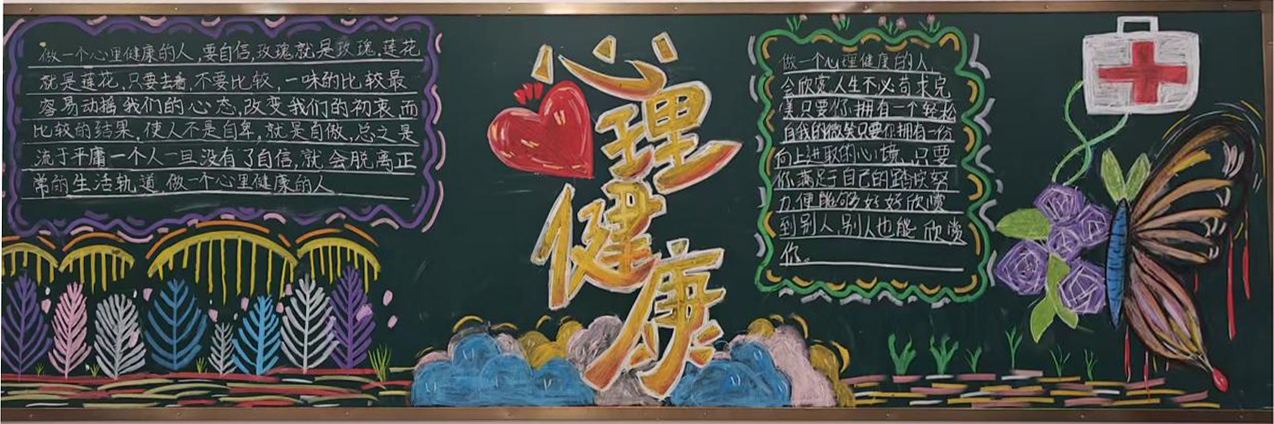 做一个心里健康的人,要自信,玫瑰就是玫瑰,莲花
就是莲花,只要去看,不要比较,一味的比较最
容易动摇我们的心态,改变我们的初衷,而
比较的结果,使人不是自卑,就是自傲,总之是
流于平庸一个人一旦没有了自信,就会脱离正
常的生活轨道,做一个心里健康的人
心理
健康
做一个心理健康的人,
会欣赏人生不必苟求完
美只要你拥有一个轻松
自我的微笑只要你拥有一份
向上进取的心境,只要
你满足于自己的踏实努
力便能够好好欣赏
到别人,别人也能欣赏
你。